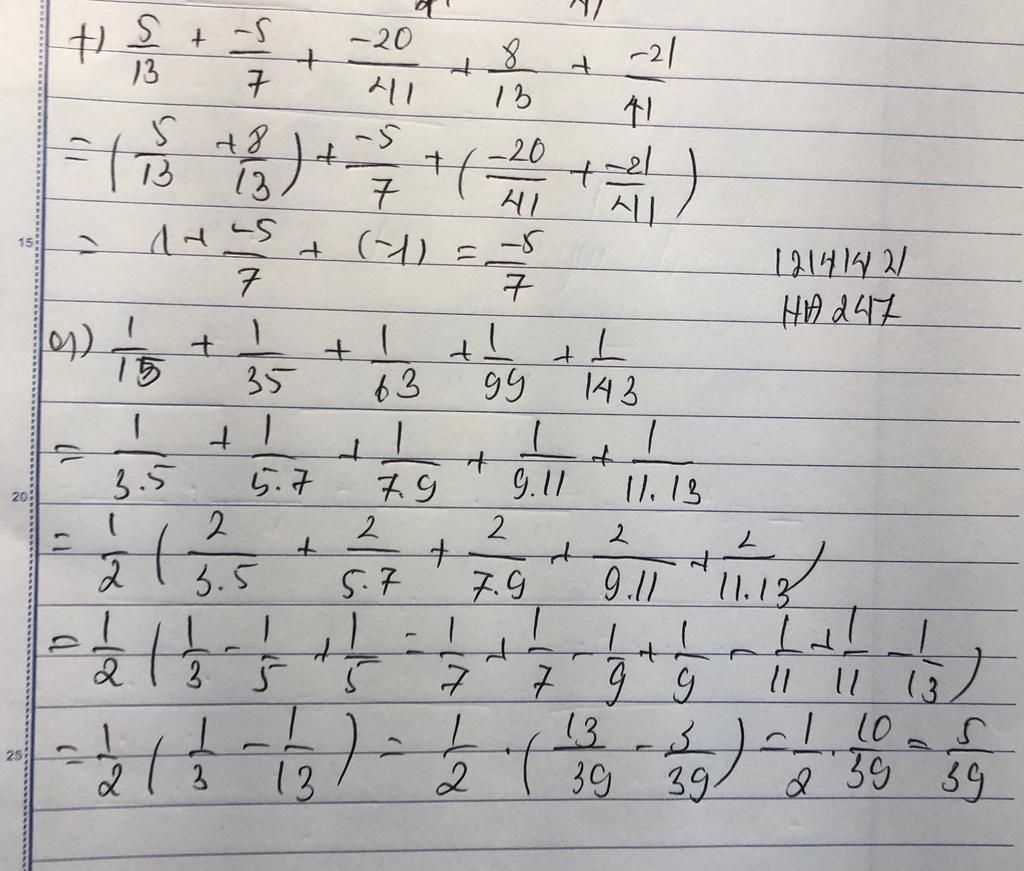 f) 5/13 + -5/7 + -20/41 + 8/13 + -21/41
= (5/13 + 8/13) + -5/7 + (-20/41 + -21/41)
15
= 1 + -5/7 + (-1) = -5/7
12141421
HA247
g) 1/15 + 1/35 + 1/63 + 1/99 + 1/143
= 1/3.5 + 1/5.7 + 1/7.9 + 1/9.11 + 1/11.13
20
= 1/2 (2/3.5 + 2/5.7 + 2/7.9 + 2/9.11 + 2/11.13)
= 1/2 (1/3 - 1/5 + 1/5 - 1/7 + 1/7 - 1/9 + 1/9 - 1/11 + 1/11 - 1/13)
25
= 1/2 (1/3 - 1/13) = 1/2 . (13/39 - 3/39) = 1/2 . 10/39 = 5/39